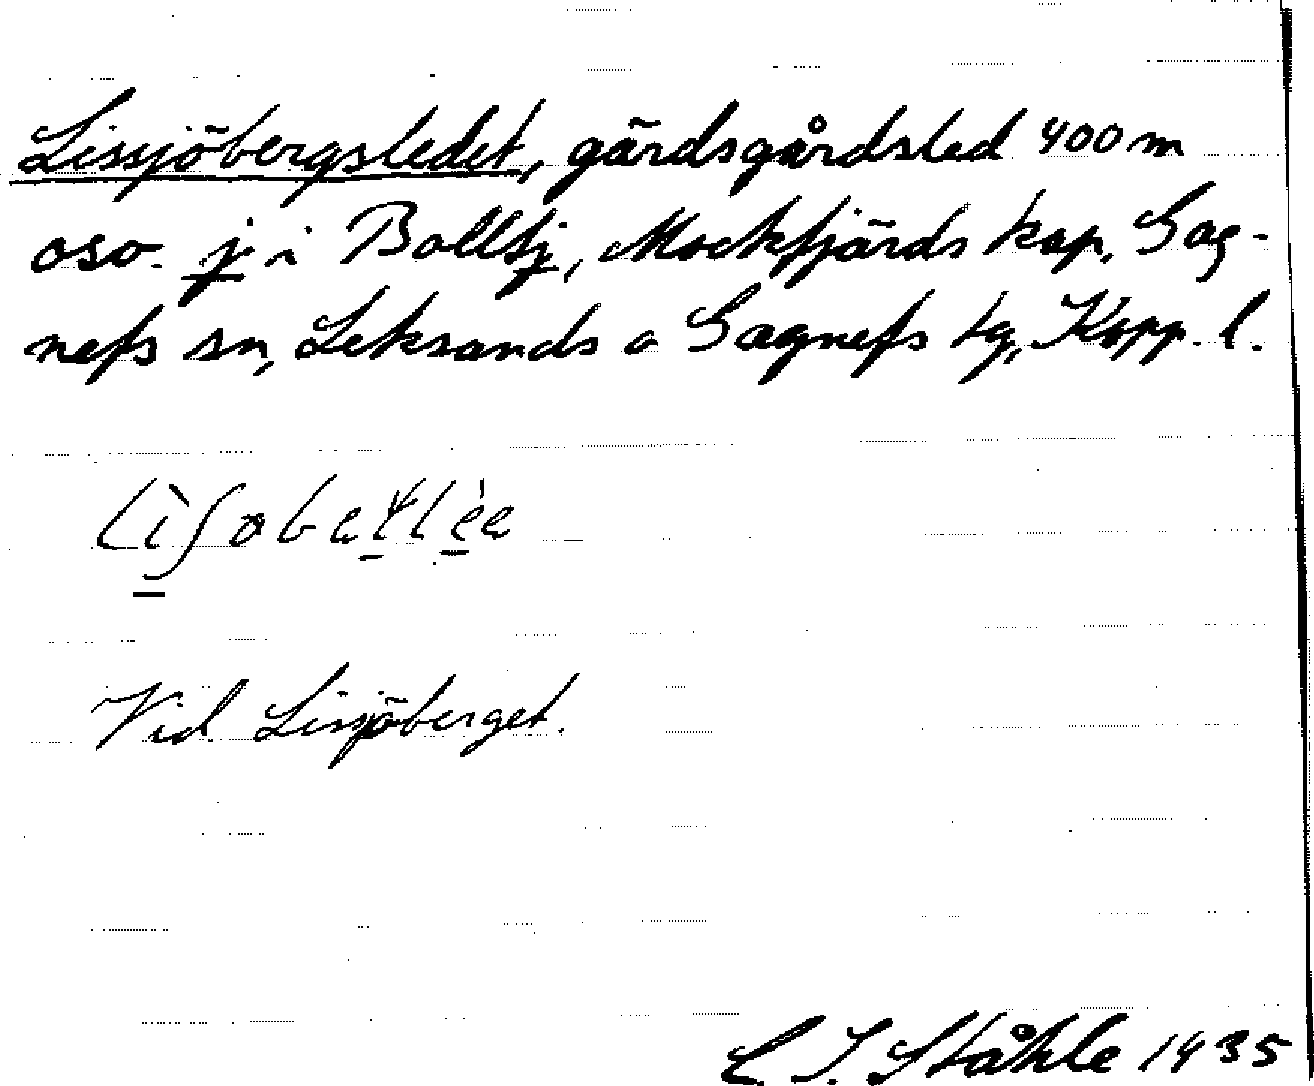 Lissjöbergsledet, gärdsgårdsled 400 m
oso. j i Bollsj, Mockfjärds kap, Gag-
nefs sn, Leksands o Gagnefs tg, Kopp. l.
Vid Lissjöberget.
C I. Ståhle 1935